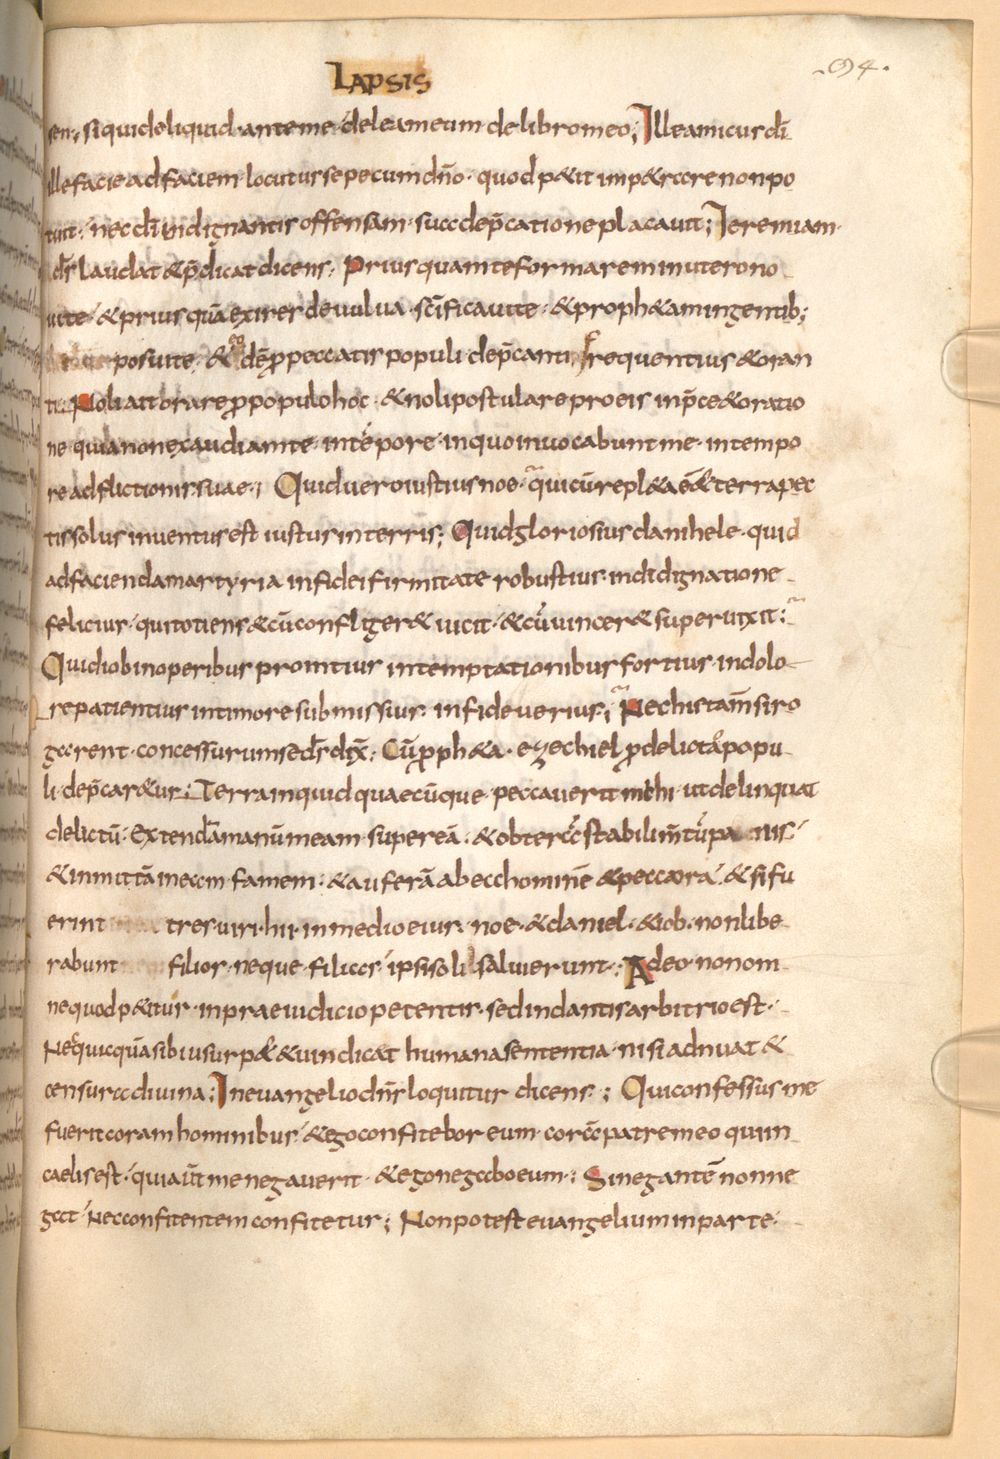 Lapsis
94.
sen; siquideliquid·anteme·deleameum delibromeo; Illeamicusdī
illefacieadfaciem·locutussepecumdn̄o· quodp&iit imp&rarenonpo
tuit· necdī indignantis offensam· suadep̄cationeplacauit; Ieremiam·
ds̄ laudat &p̄dicatdicens· Priusquamteformareminuterono
uite· &priusquāexiresdeuulua·sc̄ificauite· &proph&amingentib;
posuite· & dēp̱peccatispopuli dep̄canti frequentius &oran
ti· Noliattorarep̱populohoc· &nolipostulareproeis inp̄ce&oratio
ne quianonexaudiamte· intēpore· inquoinuocabuntme· intempo
readflictionissuae·; Quiduerоiustiusnoe· quicūrepl&aēē&terrapec
tissolus inuentusest iustusinterris; Quidgloriosiusdanihele· quid
adfaciendamartyria infideifirmitate robustius· indidignatione
felicius· quitotiens&cūconfliger& uicit· &cūuincer& superuixit;
Quidiobinoperibus promtius intemptationibusfortius· indolo
repatientius intimoresubmissius· infideuerius; Nechistam̄siro
garent· concessurumseds̄dix̄; Cūp̱ph&a· ezechiel p̱delictapopu
li·dep̄car&ur; Terrainquidquaecūque·peccauerit mihi· utdelinquat
delictū· Extendāmanūmeam·supereā· &obterāstabilim̄tūpa nis·
&inmittāineam famem· &auferā abeahominē &peccora· &sifu
erint tres·uiri·hii·inmedioeius· noe·&daniel·&iob·nonlibe
rabunt filios·neque·filias· ipsisoli saluierunt·; Adeo·nonom
nequodp&itur·inpraeiudiciopetentis·sedindantisarbitrioest·
Necquicquāsibiusurp& &uindicat humanasententia· nisiadnuat &
censuradiuina; Ineuangeliodn̄sloquitur dicens·; Quiconfessusme
fueritcoramhominibus· &egoconfiteboreum· corāpatremeoquiin
caelisest· quiaūt menegauerit· &egonegaboeum·; Sinegantēnonne
gat· Necconfitentemconfitetur; Nonpotesteuangeliuminparte·